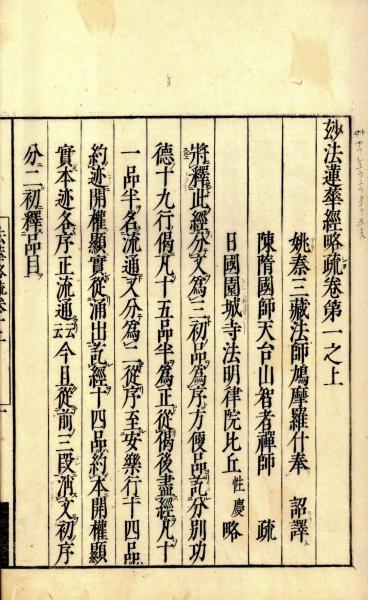 玅法蓮華經略疏卷第一之上
姚秦三藏法師鳩摩羅什奉　詔譯
陳隋國師天台山智者禪師　疏
日國園城寺法明律院比丘　性慶　略
將釋此經分文為三初品為序方便品訖分別功
德十九行偈凡十五品半為正從偈後盡經凡十
一品半名流通又分為二從序至安樂行十四品
約迹開權顯實從涌出訖經十四品約本開權顯
實本迹各序正流通云云今且從前三段消文初序
分二初釋品目